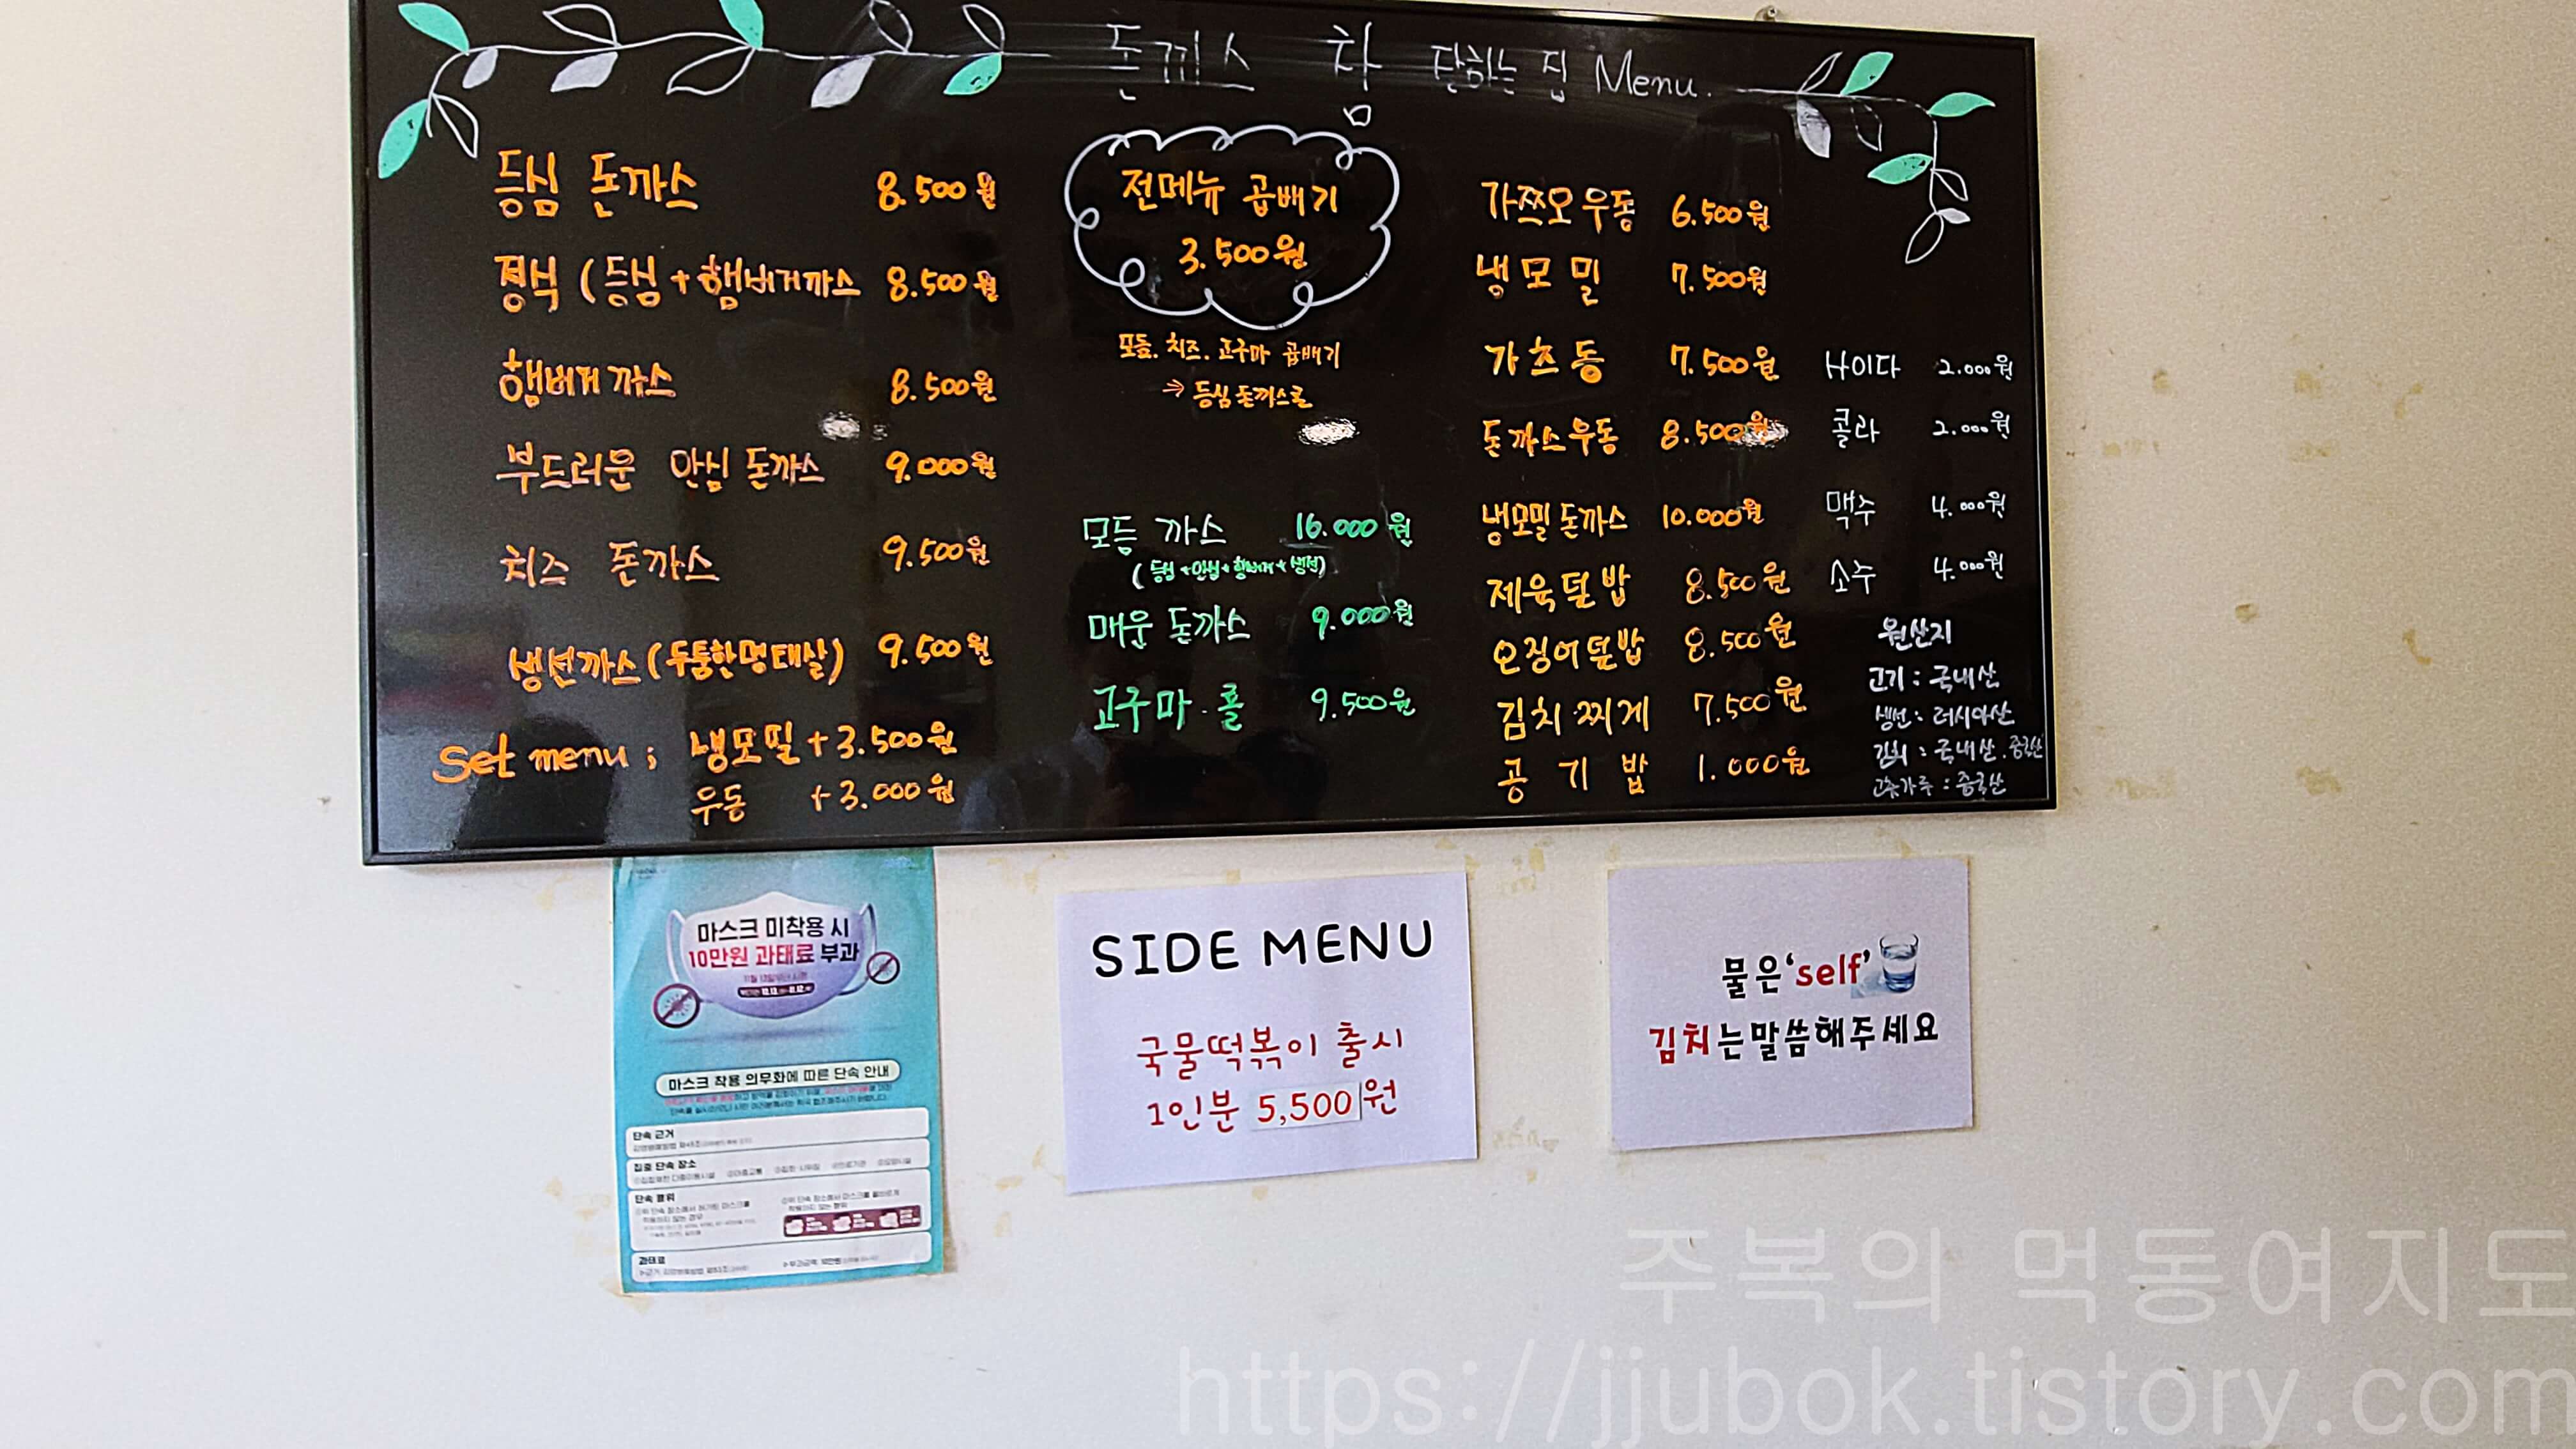 돈까스 참 잘하는 집 Menu.
등심 돈까스 8.500원
정식 (등심+햄버거까스 8.500원
햄버거까스 8.500원
부드러운 안심 돈까스 9.000원
치즈 돈까스 9.500원
생선까스(두툼한명태살) 9.500원
Set menu; 냉모밀+3.500원
우동 +3.000원
전메뉴 곱배기
3.500원
모듬. 치즈. 고구마 곱배기
→ 등심돈까스로
모듬 까스 16.000원
(등심+안심+햄버거+생선)
매운 돈까스 9.000원
고구마·롤 9.500원
가쯔오우동 6.500원
냉모밀 7.500원
가츠동 7.500원
돈까스우동 8.500원
냉모밀돈까스 10.000원
제육덮밥 8.500원
오징어덮밥 8.500원
김치찌게 7.500원
공기밥 1.000원
사이다 2.000원
콜라 2.000원
맥주 4.000원
소주 4.000원
원산지
고기: 국내산
생선: 러시아산
김치: 국내산.중국산
고춧가루: 중국산
마스크 미착용 시
10만원 과태료 부과
마스크 착용 의무화에 따른 단속 안내
단속 근거
집중 단속 장소
단속 행위
과태료
SIDE MENU
국물떡볶이 출시
1인분 5,500원
물은'self'
김치는말씀해주세요
주복의 먹동여지도
https://jjubok.tistory.com